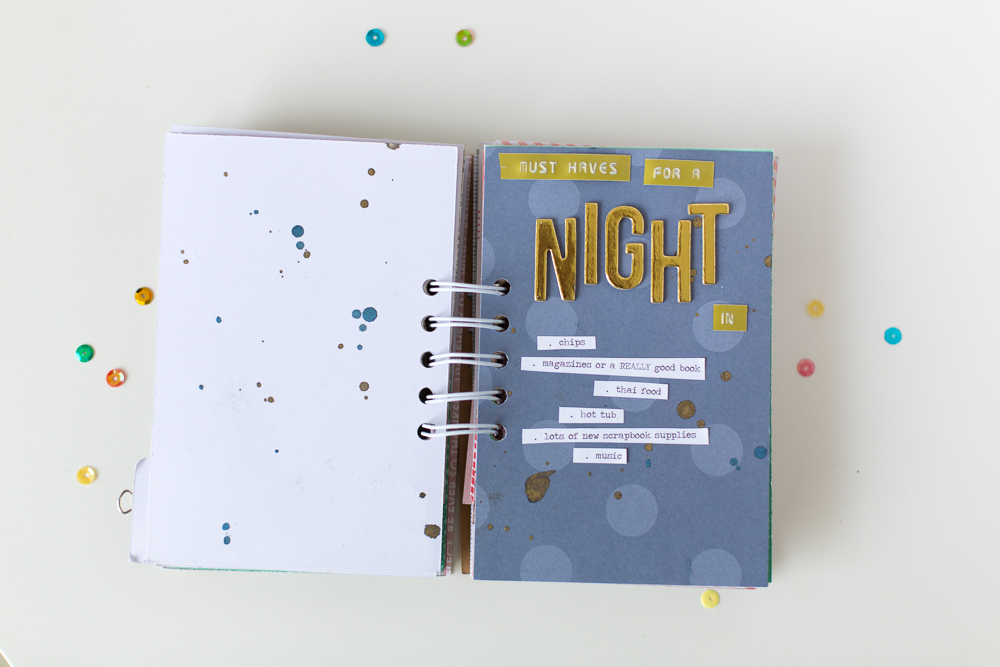 MUST HAVES FOR A
NIGHT
IN
. chips
. magazines or a REALLY good book
. thai food
. hot tub
. lots of new scrapbook supplies
. music